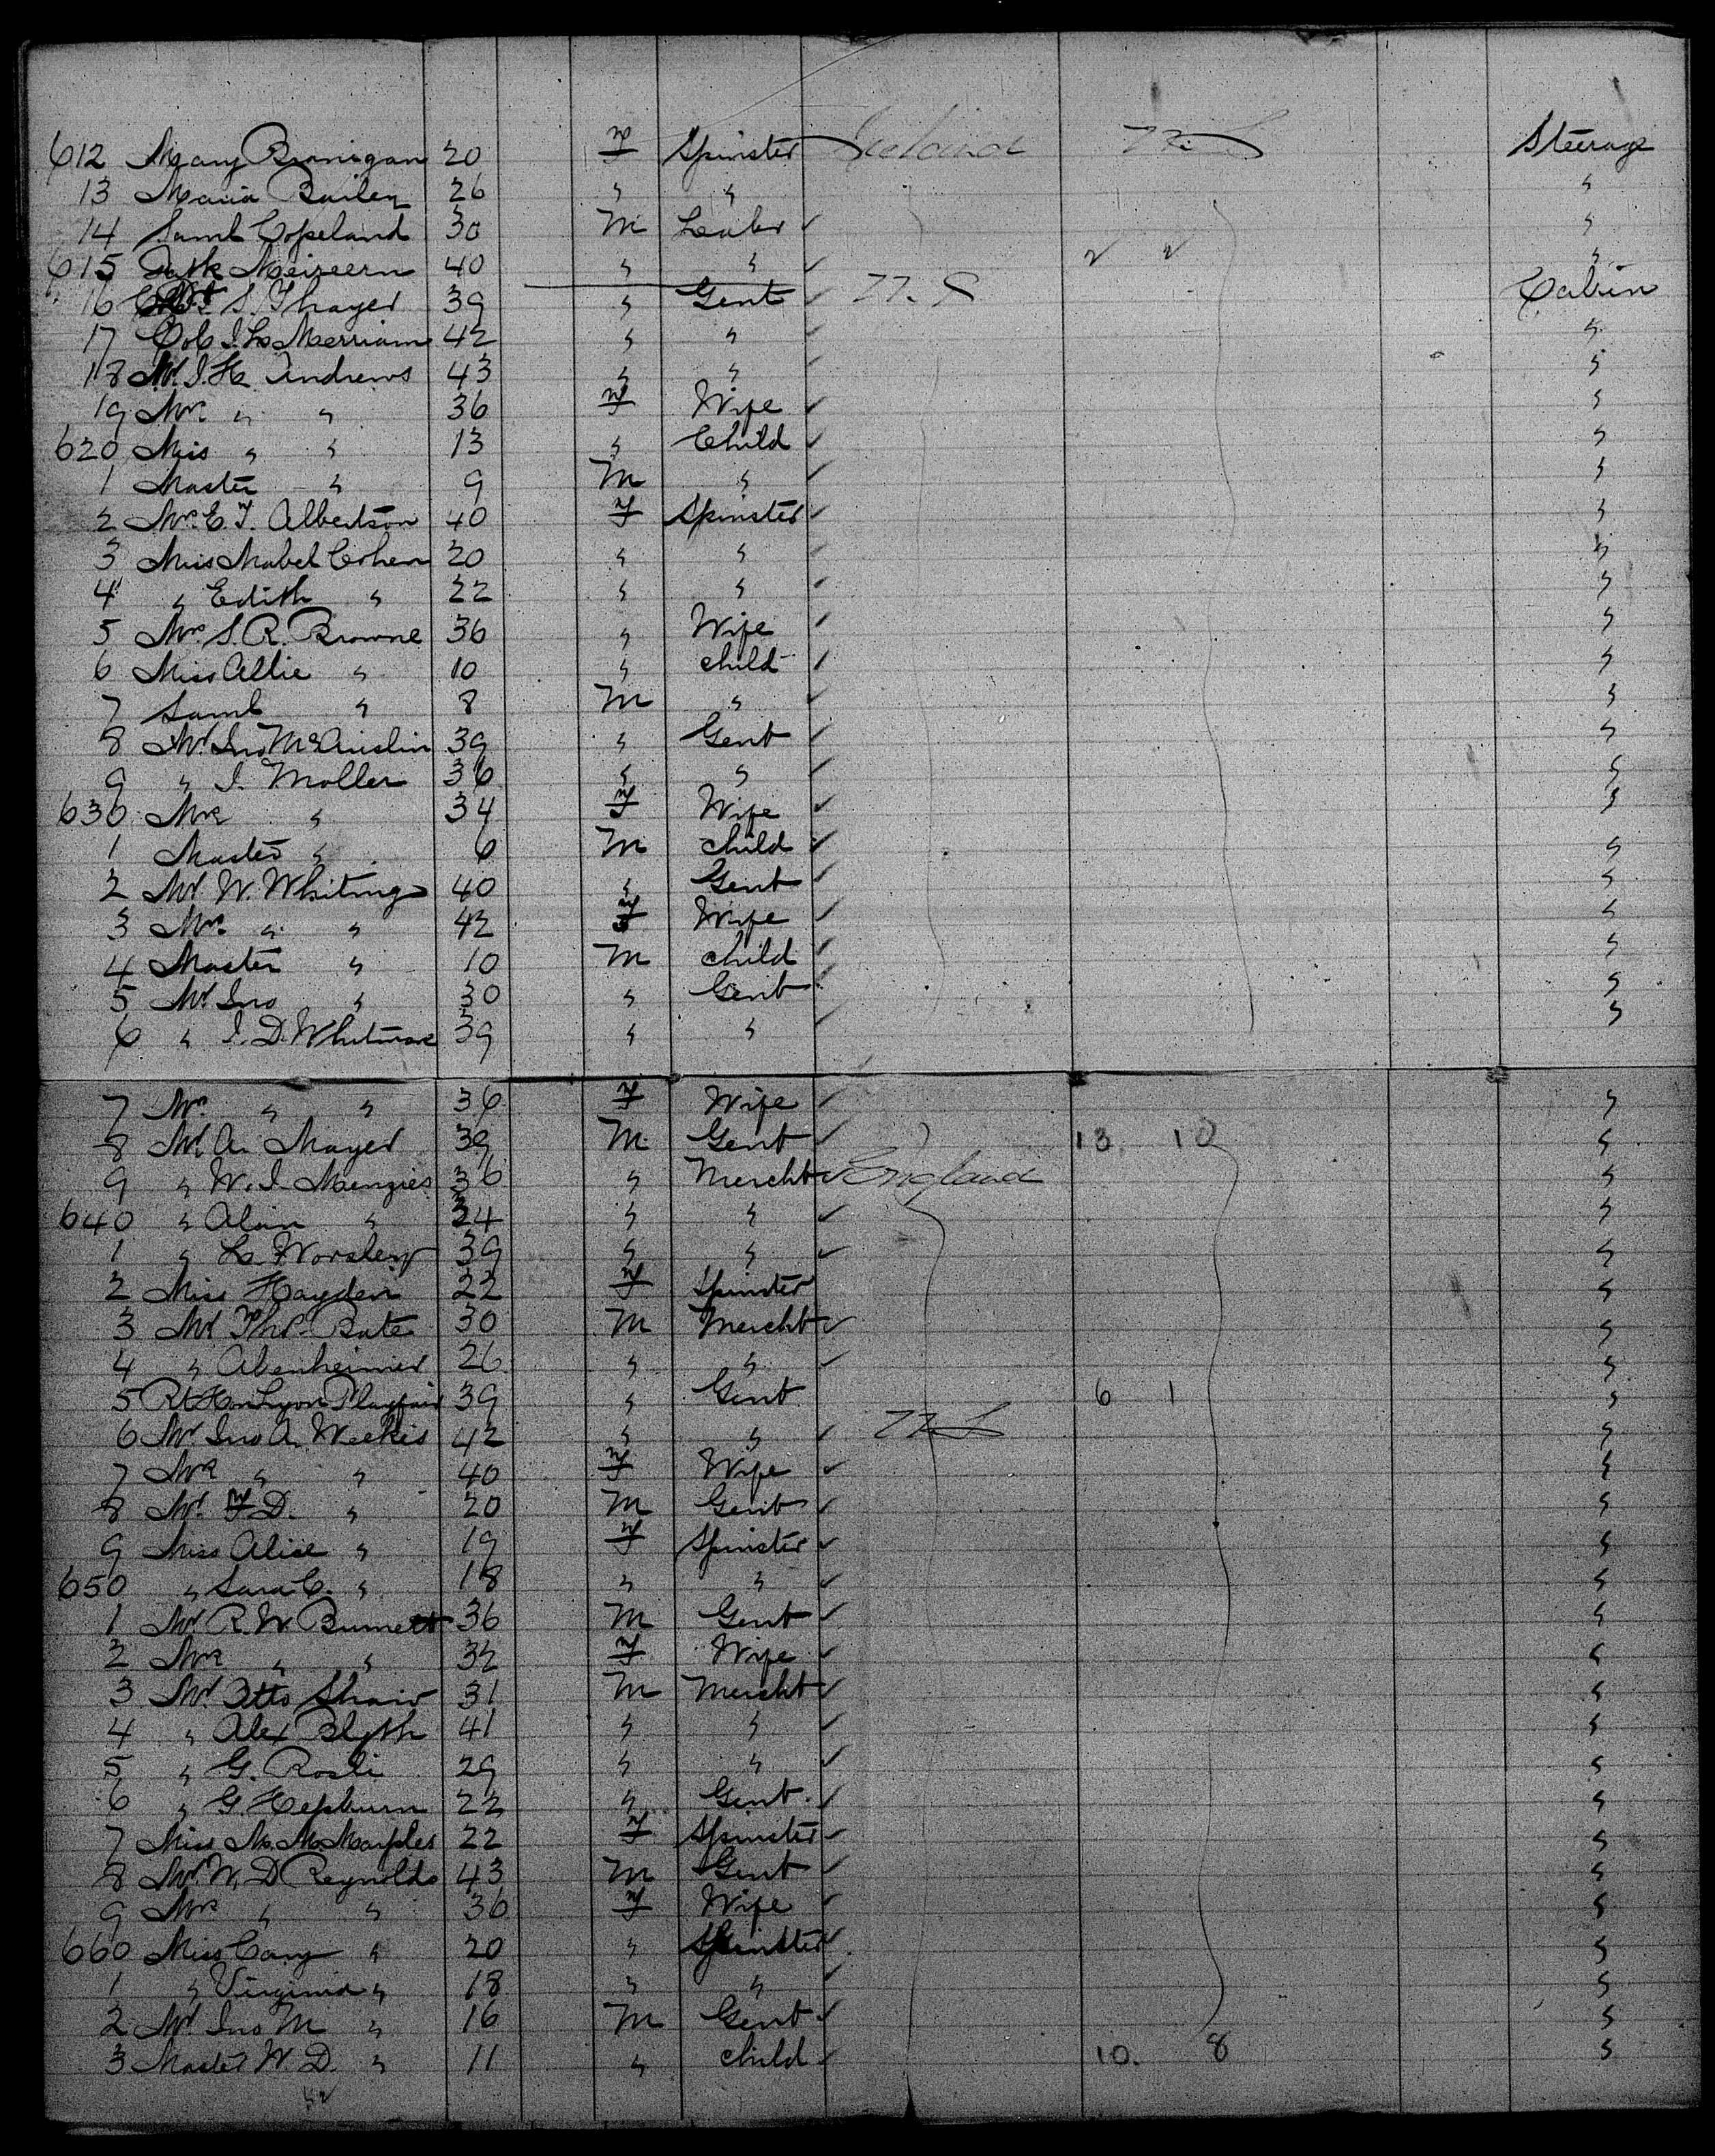 612 Mary Branigan 20 F Spinster Ireland U.S. Steerage
13 Maria Bailey 26 " " "
14 Saml Copeland 30 M Labr ✓ "
615 40 " " ✓ "
16 S. Thayer 39 " Gent ✓ U.S. Cabin
17 Col J. L. Merriam 42 " " "
18 Mr. J. H. Andrews 43 " " ✓ "
19 Mrs " " 36 F Wife ✓ "
620 Miss " " 13 " Child ✓ "
1 Master " 9 M " ✓ "
2 Mrs. E. F. Albertson 40 F Spinster ✓ "
3 Miss Mabel Cohen 20 " " "
4 " Edith " 22 " " ✓ "
5 Mrs. S. R. Browne 36 " Wife ✓ "
6 Miss Allie " 10 " child ✓ "
7 Saml " 8 M " ✓ "
8 Mr. Jno 39 " Gent ✓ "
9 " J. Moller 36 " " ✓ "
630 Mrs " 34 F Wife ✓ "
1 Master " 6 M child ✓ "
2 Mr W. Whiting 40 " Gent ✓ "
3 Mrs. " " 42 F Wife ✓ "
4 Master " 10 M child ✓ "
5 Mr. Jno " 30 " Gent "
6 " J. D. Whitmore 39 " " ✓ "
7 Mrs " " 36 F Wife ✓ "
8 Mr. A. Mayer 39 M Gent ✓ 13 10 "
9 " W. J. Menzies 36 " Mercht ✓ England "
640 " Alan " 24 " " ✓ "
1 " L. Worsley 39 " " ✓ "
2 Miss Hayden 22 F Spinster "
3 Mr Thos. Bate 30 M Mercht ✓ "
4 " Abenheimer 26 " " ✓ "
5 Rt Hon Lyon Playfair 39 " Gent 6 1 "
6 Mr Jno A. Weekes 42 " " ✓ U.S. "
7 Mrs " " 40 F Wife ✓ "
8 Mr. F. D. " 20 M Gent ✓ "
9 Miss Alice " 19 F Spinster ✓ "
650 " Sara C. " 18 " " ✓ "
1 Mr. R. W. Burnett 36 M Gent ✓ "
2 Mrs " " 32 F Wife ✓ "
3 Mr Otto Shair 31 M Mercht ✓ "
4 " Alex Blyth 41 " " ✓ "
5 " G. Rosli 29 " " ✓ "
6 " G. Hepburn 22 " Gent ✓ "
7 Miss M. M. Marples 22 F Spinster ✓ "
8 Mr. W. D Reynolds 43 M Gent ✓ "
9 Mrs " " 36 F Wife ✓ "
660 Miss Cary " 20 " Spinster "
1 " Virginia " 18 " " ✓ "
2 Mr. Jno M " 16 M Gent ✓ "
3 Master W. D. " 11 " child ✓ 10. 8 "